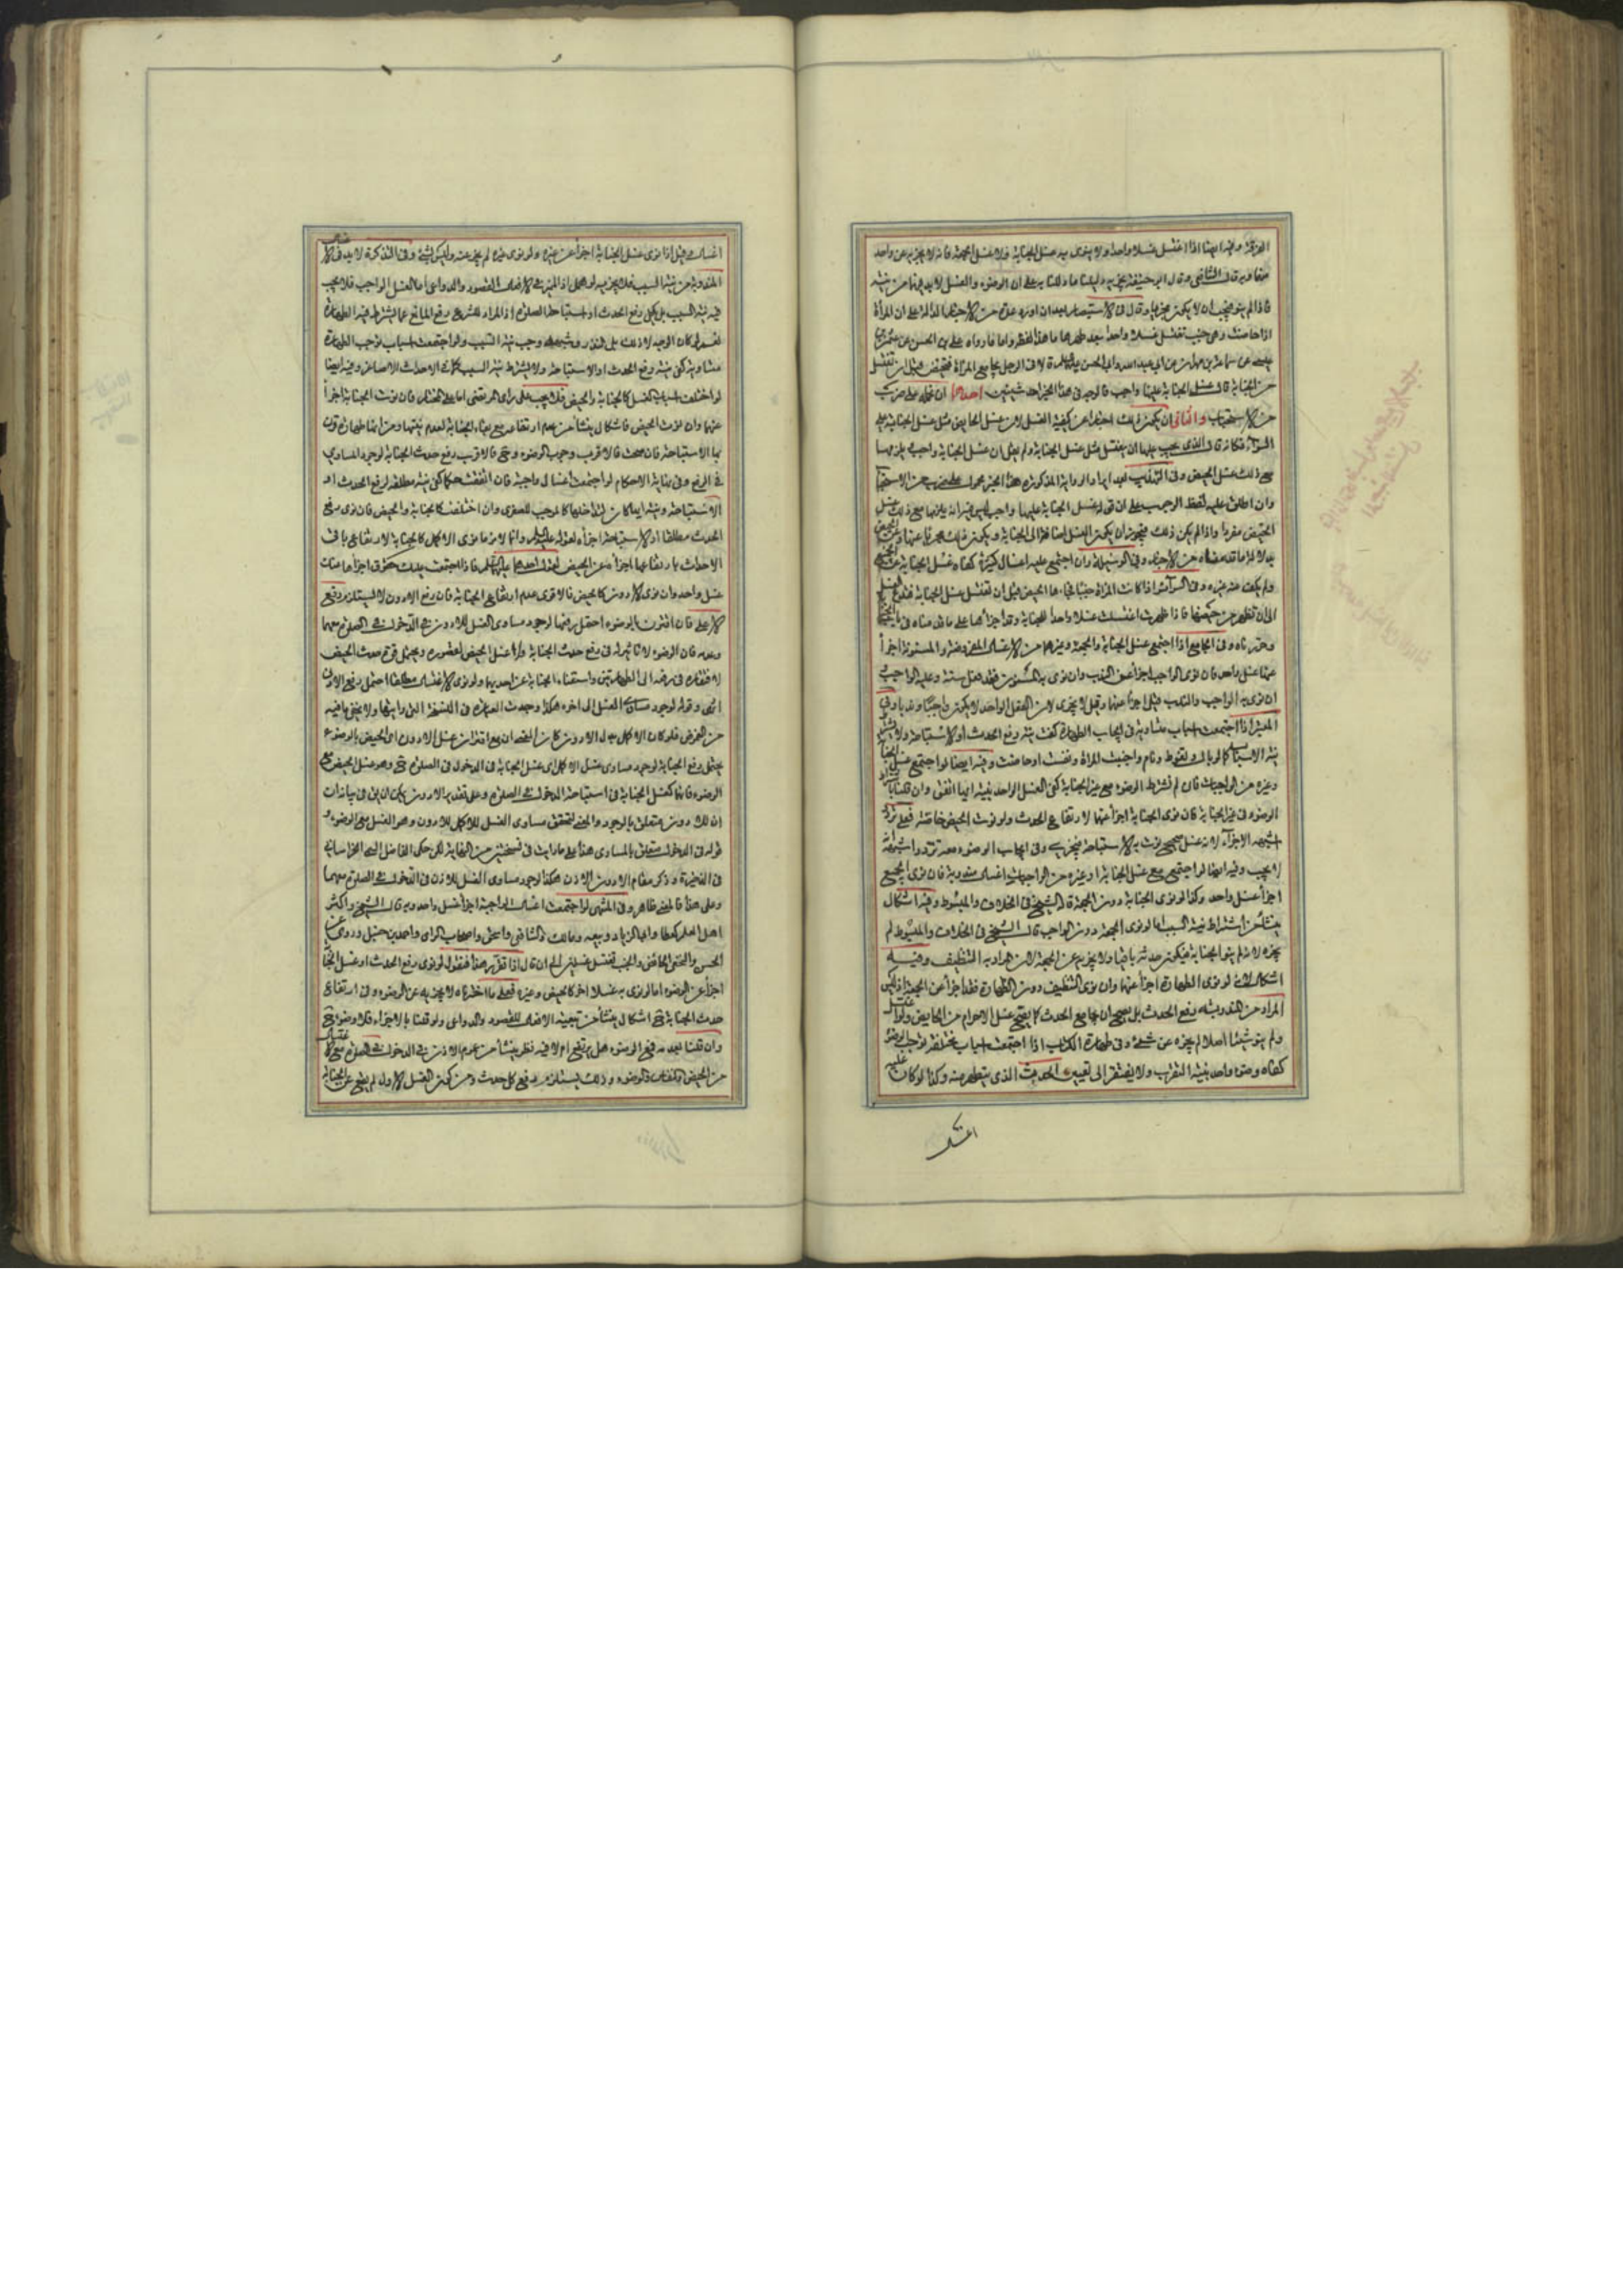 الفرقة وفيه ايضا اذا اغتسل غسلا واحدا ولا ينوى به غسل الجنابة ولا غسل الجمعة فانه لا يجزيه عن واحد
منهما وبه قال الشافعى وقال ابو حنيفة يجزيه دليلنا ما دللنا به على ان الوضوء والغسل لا بد فيهما من نية
فاذا لم ينو فيجب ان لا يكون مجزيا وقال فى الاستبصار بعد ان اورد عدة من الاخبار الدالة على ان المرأة
اذا حاضت وهى جنب تغتسل غسلا واحدا بعد طهرها ما هذا لفظه واما ما رواه على بن الحسن عن عثمان بن
عيسى عن سماعة بن مهران عن ابى عبد الله وابى الحسن قالا فى الرجل يجامع المرأة فتحيض قبل ان تغتسل
من الجنابة قال غسل الجنابة عليها واجب فالوجه فى هذا الخبر احد شيئين احدهما ان نحمله على ضرب
من الاستحباب والثانى ان يكون ذلك اخبارا عن كيفية الغسل لان غسل الحايض مثل غسل الجنابة على
السواء فكانه قال الذى يجب عليها ان تغتسل مثل غسل الجنابة ولم يقل ان غسل الجنابة واجب يلزمها
مع ذلك غسل الحيض وفى التهذيب بعد ايراد الرواية المذكورة هذا الخبر محمول على ضرب من الاستحباب
وان اطلق عليه لفظ الوجوب على ان قوله غسل الجنابة عليها واجب ليس فيه انه يلزمها مع ذلك غسل
الحيض مفردا واذا لم يكن ذلك فيجوز ان يكون الغسل ايضا الى الجنابة ويكون ذلك مجزيا عنها وعن الحيض
من الاخبار وفى الوسيلة وان اجتمع عليه اغسال كثيرة كفاه غسل الجنابة عن الجميع
ولم يكف عنه غيره وفى السرائر اذا كانت المرأة جنبا فجاءها الحيض قبل ان تغتسل غسل الجنابة فلتدع الغسل
الى ان تطهر من حيضها فاذا طهرت اغتسلت غسلا واحدا للجنابة وقد اجزأها على ما فى باب الجنابة
وحررناه وفى الجامع اذا اجتمع غسل الجنابة والجمعة وغيرهما من الاغسال المفروضة والمسنونة اجزأ
عنها غسل واحد فان نوى الواجب اجزأ عن الندب وان نوى به المسنون فقد فعل سنة وعليه الواجب
ان نوى به الواجب والندب قيل اجزأ عنهما وقيل لا يجزى لان الفعل الواحد لا يكون واجبا وندبا وفى
المعتبر اذا اجتمعت اسباب متساوية فى ايجاب الطهارة كفت نية رفع الحدث او الاستباحة ولا يشترط
نية الاسباب كما لو بال وتغوط ونام واجنبت المرأة ونفست او حاضت وفيه ايضا لو اجتمع غسل الجنابة
وغيره من الواجبات فان لم نشترط الوضوء مع غير الجنابة كفى الغسل الواحد بنية ايها اتفق وان قلنا باشتراط
الوضوء فى غير الجنابة فان نوى الجنابة اجزأ عنهما لارتفاع الحدث ولو نوت الحيض خاصة فعلى تردد
اشبهه الاجزاء لانه غسل صحيح نوت به الاستباحة فيجزى وفى ايجاب الوضوء معه تردد واشبهه
لا يجب وفيه ايضا لو اجتمع مع غسل الجنابة او غيره من الواجبات اغسال مندوبة فان نوى الجميع
اجزأ غسل واحد وكذا لو نوى الجنابة دون الجمعة قال الشيخ فى الخلاف والمبسوط وفيه اشكال
ينشأ من اشتراط نية السبب اما لو نوى الجمعة دون الواجب قال الشيخ فى الخلاف والمبسوط لم
يجزه لانه لم ينو الجنابة فيكون حدثه باقيا ولا يجزيه عن الجمعة لان المراد به التنظيف وفيه
اشكال لانه لو نوى الطهارة اجزأ عنهما وان نوى التنظيف دون الطهارة فقد اجزأ عن الجمعة اذ ليس
المراد من المندوبة رفع الحدث بل يصح ان يجامع الحدث كما يصح غسل الاحرام من الحايض ولو اغتسل
ولم ينو شيئا اصلا لم يجزه عن شىء وفى طهارة الكتاب اذا اجتمعت اسباب مختلفة توجب الوضوء
كفاه وضوء واحد بنية التقرب ولا يفتقر الى تعيين الحدث الذى يتطهر منه وكذا لو كان عليه
اغسال
اغسال قيل اذا نوى غسل الجنابة اجزأ عن غيره ولو نوى غيره لم يجز عنه وليس بشىء وفى التذكرة لا بد فى الاغسال
المندوبة من نية السبب فلا يجزيه لو اهمل اذ لتميز الافعال القصود والدواعى اما الغسل الواجب فلا يجب
فيه نية السبب بل يكفى رفع الحدث او استباحة الصلوة اذ المراد للشروع رفع المانع عما يشترط فيه الطهارة
نعم لو كان الوجه لا ذلك بل وشبهه وجب نية السبب ولو اجتمعت اسباب توجب الطهارة
متساوية كفى نية رفع الحدث او الاستباحة ولا يشترط نية السبب كما فى الاحداث الاصاغر وفيه ايضا
لو اختلفت اسباب الغسل كالجنابة والحيض فلا يجب على رأى المرتضى اما على المختار فان نوت الجنابة اجزأ
عنهما وان نوت الحيض فاشكال ينشأ من عدم ارتفاعه مع بقاء الجنابة لعدم نيتها ومن انها طهارة قرن
بها الاستباحة فان صحت فالاقرب وجوب الوضوء و ح فالاقرب رفع حدث الجنابة لوجود المساوى
فى الرفع وفى نهاية الاحكام لو اجتمعت اغسال واجبة فان اتفقت حكما كفى نية مطلقة لرفع الحدث او
الاستباحة ونية ايها كان لتداخلها كموجب الصغرى وان اختلفت كالجنابة والحيض فان نوى رفع
الحدث مطلقا او الاستباحة اجزأه لقوله عليه السلام وانما لامرء ما نوى الاكمل كالجنابة لارتفاع باقى
الاحداث بارتفاعها اجزأه عن الحيض لقول احدهما عليهما السلام فاذا اجتمعت عليك حقوق اجزأها عنك
غسل واحد وان نوى الادون كالحيض فالاقوى عدم ارتفاع الجنابة فان رفع الادون لا يستلزم رفع
الاعلى فان اقترن بالوضوء احتمل رفعها لوجود مساوى الغسل للادون فى الدخول فى الصلوة معهما
وعدمه فان الوضوء لا تاثير له فى رفع حدث الجنابة ولا غسل الحيض لقصوره ويحتمل قوة حدث الحيض
لافتقاره فى رفعه الى الطهارتين واستغناء الجنابة عن احديهما ولو نوى الاغتسال مطلقا احتمل رفع الادون
انتهى وقوله لوجود مساوى الغسل الى اخره هكذا وجدت العبارة فى النسخة التى رايتها ولا يخفى ما فيه
من الغرض فلو كان الاكمل بدل الادون كان المقصد ان مع اقتران غسل الادون اى الحيض بالوضوء
يحتمل رفع الجنابة لوجود مساوى غسل الاكمل اى غسل الجنابة فى الدخول فى الصلوة ح وهو غسل الحيض مع
الوضوء فانه كغسل الجنابة فى استباحة الدخول فى الصلوة وعلى تقدير الادون يمكن ان
ان للادون متعلق بالوجود والمعنى لتحقق مساوى الغسل للاكمل للادون وهو الغسل مع الوضوء و
قوله فى الدخول متعلق بالمساوى هذا على ما رايت فى نسختين من النهاية لكن حكى الفاضل الخراسانى
فى الذخيرة وذكر مقام الادون الاذن هكذا لوجود مساوى الغسل للاذن فى الدخول فى الصلوة معهما
وعلى هذا فالمعنى ظاهر وفى المنتهى لو اجتمعت اغسال الواجبة اجزأ غسل واحد وبه قال الشيخ واكثر
اهل العلم كعطا وابى الزناد وربيعه ومالك والشافعى واسحق واصحاب الراى واحمد بن حنبل وروى عن
الحسن والنخعى الحائض والجنب تغتسل غسلين الى ان قال اذا تقرر هذا فنقول لو نوى رفع الحدث او غسل الجنابة
اجزأ عن الوضوء اما لو نوى به غسلا اخر كالحيض وغيره فعلى ما اخترناه لا يجزيه عن الوضوء وفى ارتفاع
حدث الجنابة ح اشكال ينشأ من تبعية الافعال للقصود والدواعى ولو قلنا بالاجزاء فلا وضوء ح
وان قلنا بعدمه فمع الوضوء هل يرتفع ام لا فيه نظر ينشأ من عموم الاذن فى الدخول فى الصلوة مع الاغتسال
من الحيض والنفاس والوضوء وذلك يستلزم رفع كل حدث ومن كون الغسل الاول لم يقع عن الجنابة